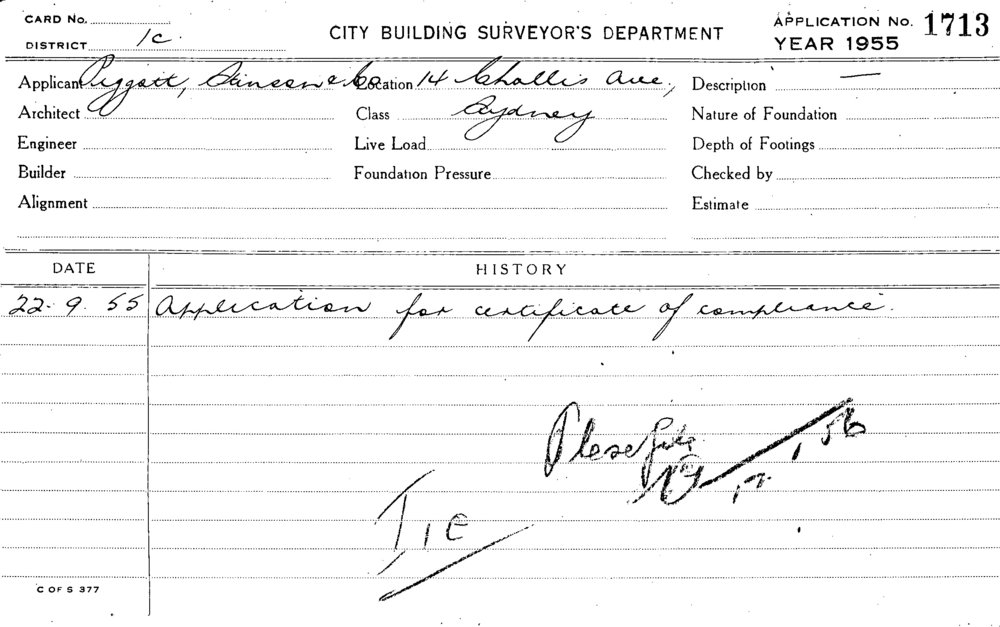 CARD No.
CITY BUILDING SURVEYOR'S DEPARTMENT
APPLICATION No. 1713
DISTRICT 1c.
YEAR 1955
Applicant Piggott, Stinson & Co Location 14 Challis Ave, Description —
Architect Class Sydney Nature of Foundation
Engineer Live Load Depth of Footings
Builder Foundation Pressure Checked by
Alignment Estimate
DATE HISTORY
22. 9. 55 Application for certificate of compliance.
Plese file
56
C OF S 377